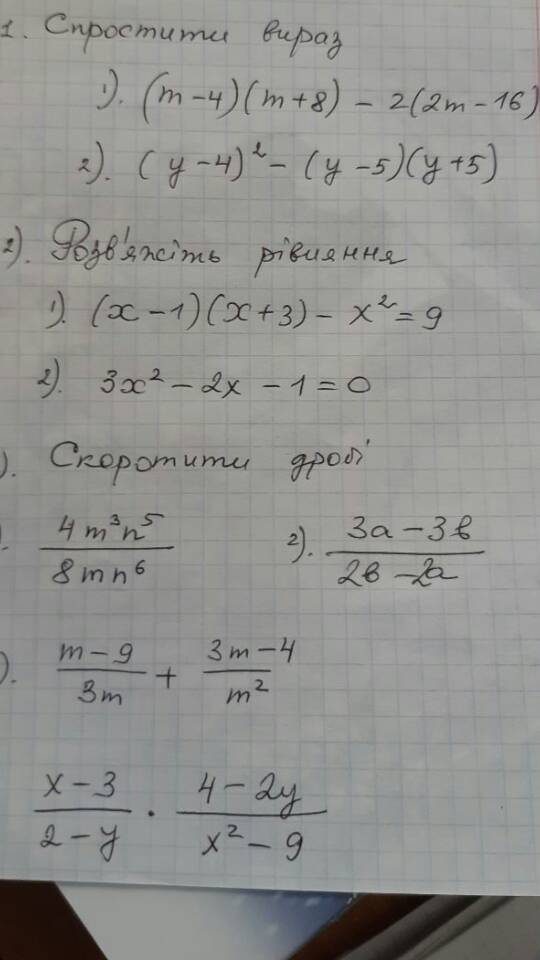 1. Спростити вираз
1). (m-4)(m+8) - 2(2m-16)
2). (y-4)² - (y-5)(y+5)
2). Розв'яжіть рівняння
1). (x-1)(x+3) - x² = 9
2). 3x² - 2x - 1 = 0
). Скоротити дробі
. 4m³n⁵/8mn⁶ 2). 3a-3b/2b-2a
). m-9/3m + 3m-4/m²
x-3/2-y · 4-2y/x²-9